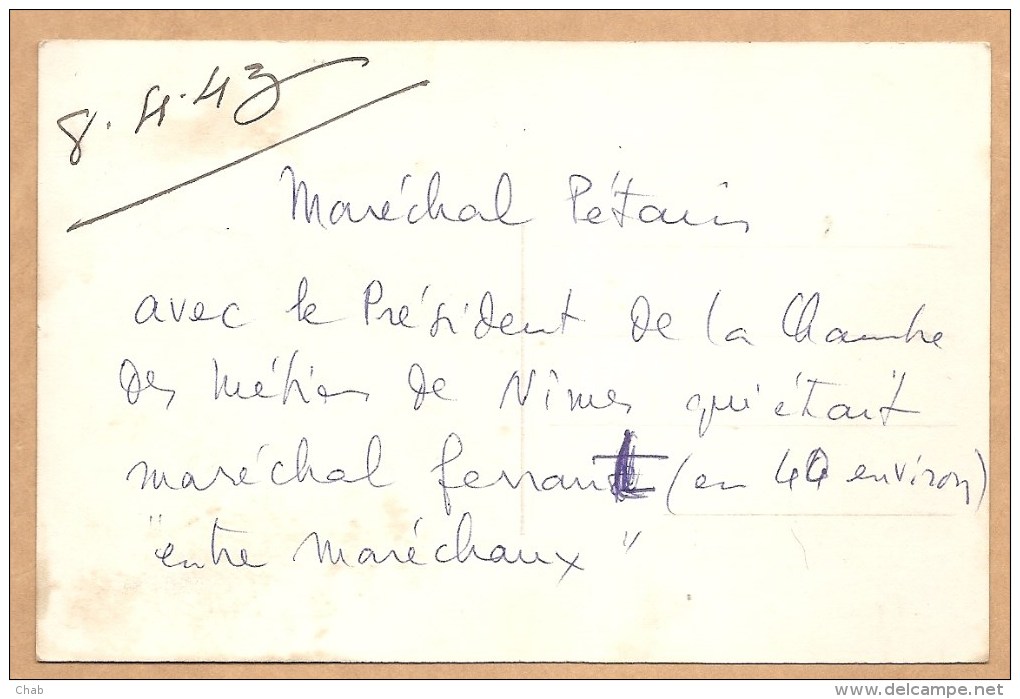 8.4.43
Maréchal Pétain
avec le Président de la Chambre
des Métiers de Nîmes qui était
maréchal ferrant (en 40 environ)
"entre maréchaux"
Chab
delcampe.net